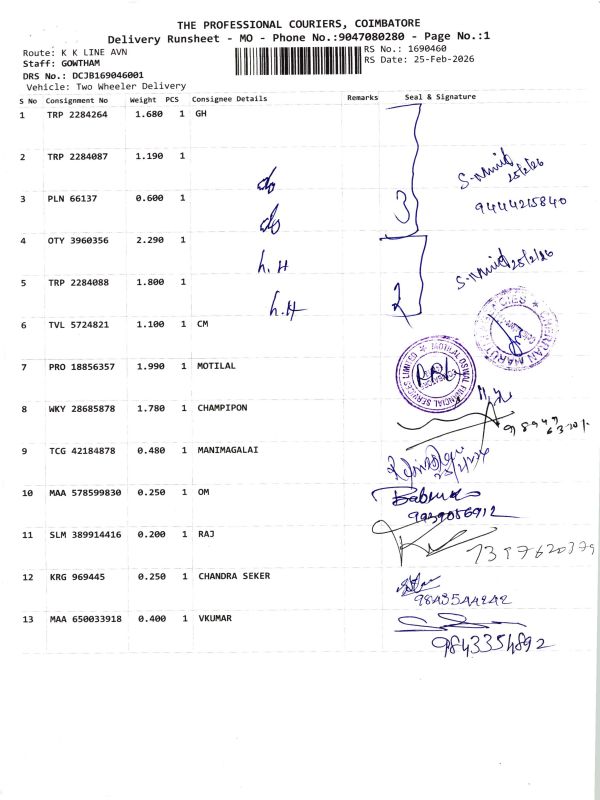 THE PROFESSIONAL COURIERS, COIMBATORE
Delivery Runsheet - MO - Phone No.:9047080280 - Page No.:1
Route: K K LINE AVN
RS No.: 1690460
Staff: GOWTHAM
RS Date: 25-Feb-2026
DRS No.: DCJB169046001
Vehicle: Two Wheeler Delivery
S No Consignment No Weight PCS Consignee Details Remarks Seal & Signature
1 TRP 2284264 1.680 1 GH
2 TRP 2284087 1.190 1
do
25/2/26
3 PLN 66137 0.600 1
3
9444215840
do
4 OTY 3960356 2.290 1
h.H
25/2/26
5 TRP 2284088 1.800 1
2
h.H
6 TVL 5724821 1.100 1 CM
7 PRO 18856357 1.990 1 MOTILAL
MOTILAL OSWAL FINANCIAL SERVICES LIMITED
8 WKY 28685878 1.780 1 CHAMPIPON
9 TCG 42184878 0.480 1 MANIMAGALAI
10 MAA 578599830 0.250 1 OM
11 SLM 389914416 0.200 1 RAJ
7397620379
12 KRG 969445 0.250 1 CHANDRA SEKER
13 MAA 650033918 0.400 1 VKUMAR
9843354892